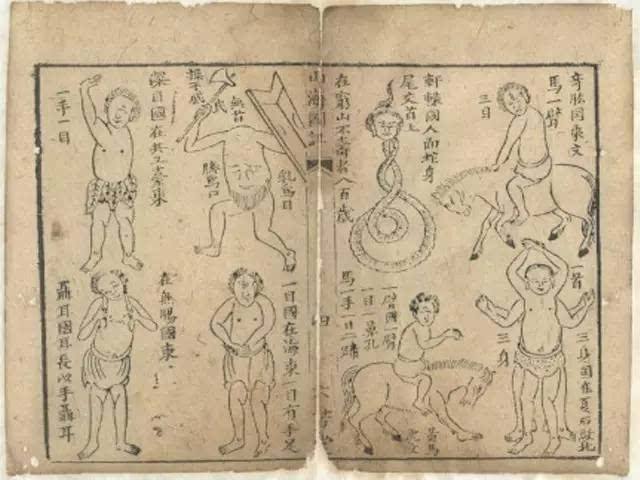 奇肱國乘文
馬一臂
三目
軒轅國人面蛇身
尾交首上
在窮山不壽者八百歲
一首
三身國在夏后啟北
三身
一臂國一臂
一目一鼻孔
馬一手一目二蹄
黃馬
虎文
山海圖
四
無首
操干戚
乳為目
臍為口
深目國在共工臺東
一手一目
一目國在海東一目有手足
在無腸國東
聶耳國耳長以手聶耳